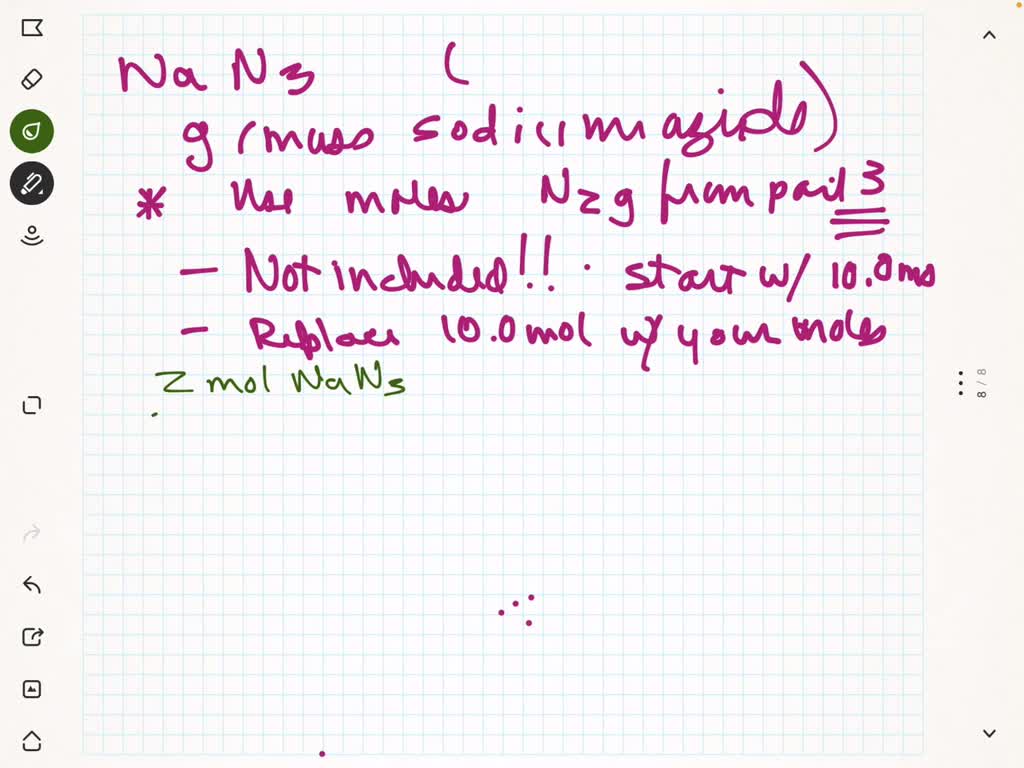 NaN3 (
g (mass sodium azide)
* Use moles N2g from part 3
- Not included!! . start w/ 10.0 mo
- Replace 10.0 mol w/ your moles
2 mol NaN3
8 / 8